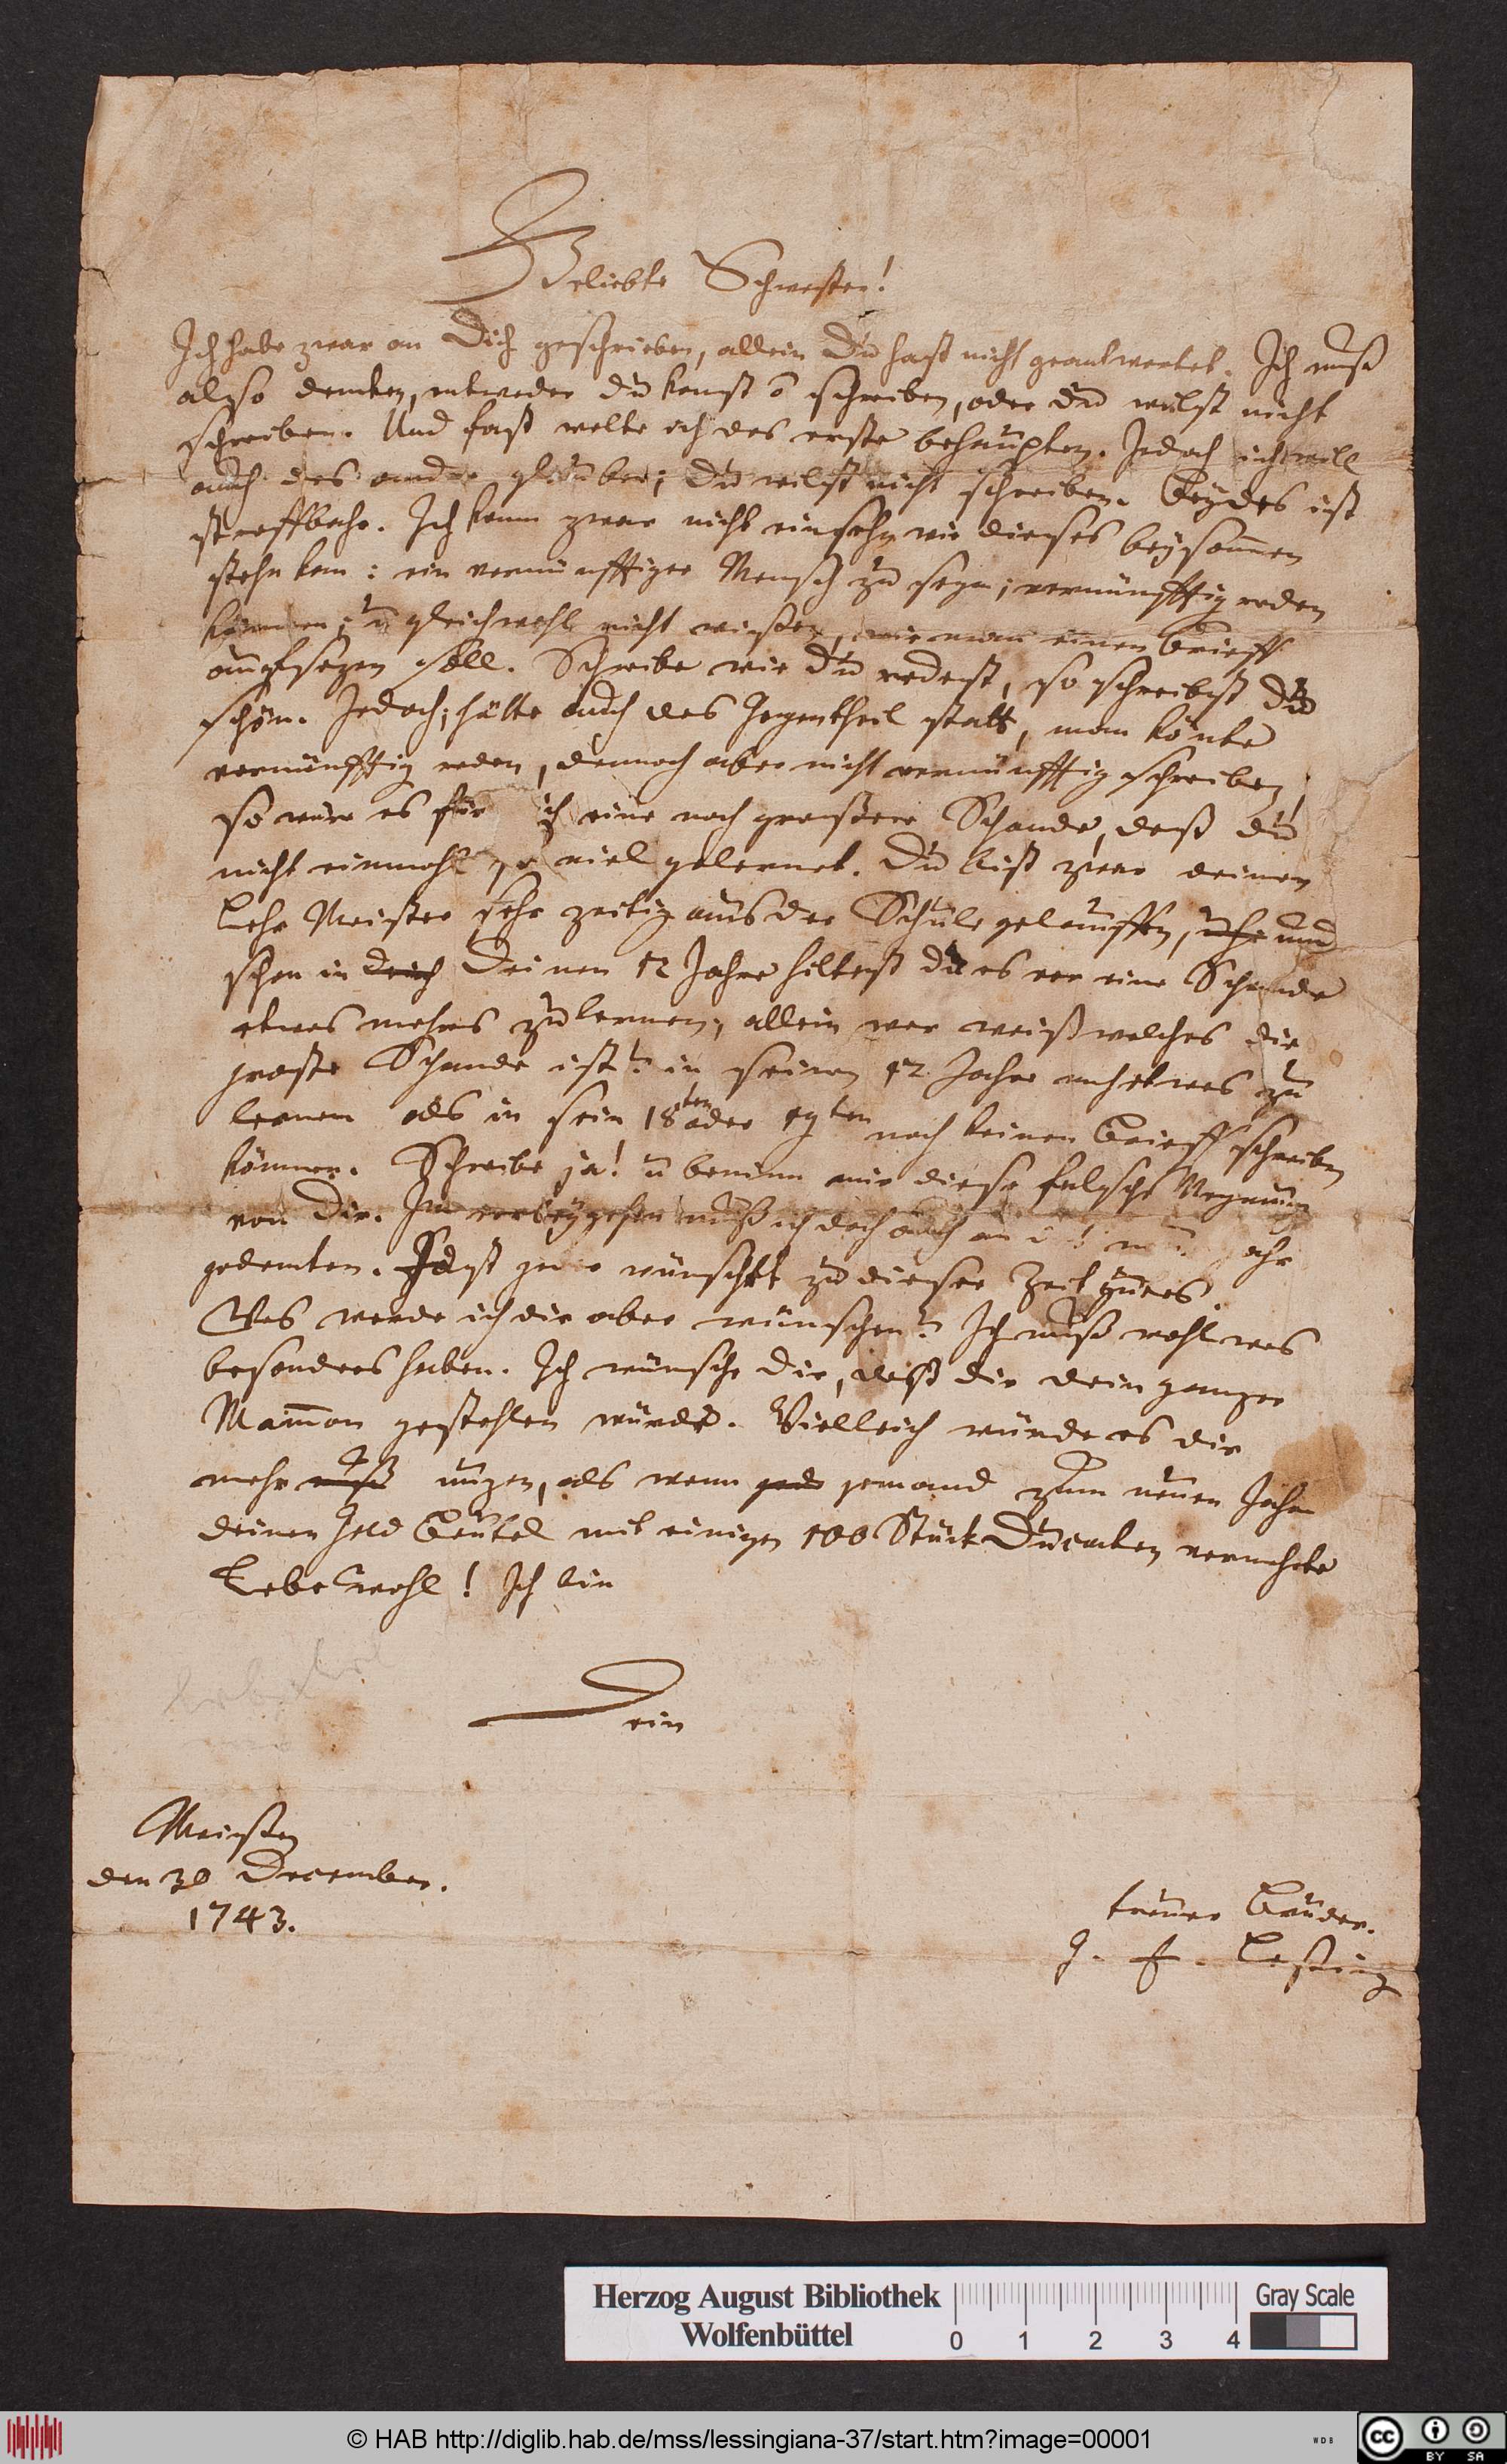 Geliebte Schwester!
Ich habe zwar an Dich geschrieben, allein Du hast nicht geantwortet. Ich muß
also dencken, entweder du kanst ō schreiben, oder du wilst nicht
schreiben. Und fast wolte ich das erste behaupten. Jedoch ich will
auch das andre glauben; Du wilst nicht schreiben. Beydes ist
straffbahr. Ich kann zwar nicht einsehn wie dieses beysam̄en
stehn kan: ein vernünfftiger Mensch zu seyn; vernünfftig reden
können; ū gleichwohl nicht wissen, wie man einen Brieff
auffsezen soll. Schreibe wie Du redest, so schreibst Du
schön. Jedoch; hätte auch das Gegentheil statt, man könte
vernünfftig reden, dennoch aber nicht vernünfftig schreiben,
so wäre es für ich eine noch größere Schande, daß du
nicht einmahl so viel gelernet. Du bist zwar deinen
Lehr Meister sehr zeitig aus der Schule gelauffen, und
schon in Deinen 12 Jahre hieltest du es vor eine Schande
etwas mehrs zu lernen; allein wer weiß welches die
gröste Schande ist? in seinen 12 Jahre noch etwas zu
lernen als in sein 18ten oder 19ten noch keinen Brieff schreiben
können. Schreibe ja! ū benim mir diese falsche Meynung
von Dir. Im vorbeygehen muß ich doch auch an ahr
gedencken. Fast jeder wünscht zu dieser Zeit gutes.
Was werde ich dir aber wünschen? Ich muß wohl was
besonders haben. Ich wünsche Dir, daß dir dein ganzer
Mam̄on gestohlen würde. Vielleich würde es dir
mehr nuzen, als wenn jemand zum neuen Jahre
deinen Geld Beutel mit einigen 100 Stück Ducaten vermehrte
Lebe wohl! Ich bin
Dein
Meissen
den 30 December.
1743.
treuer Bruder.
G. E. Lessing
Herzog August Bibliothek
Wolfenbüttel
0 1 2 3 4
Gray Scale
© HAB http://diglib.hab.de/mss/lessingiana-37/start.htm?image=00001
WDB
cc BY SA